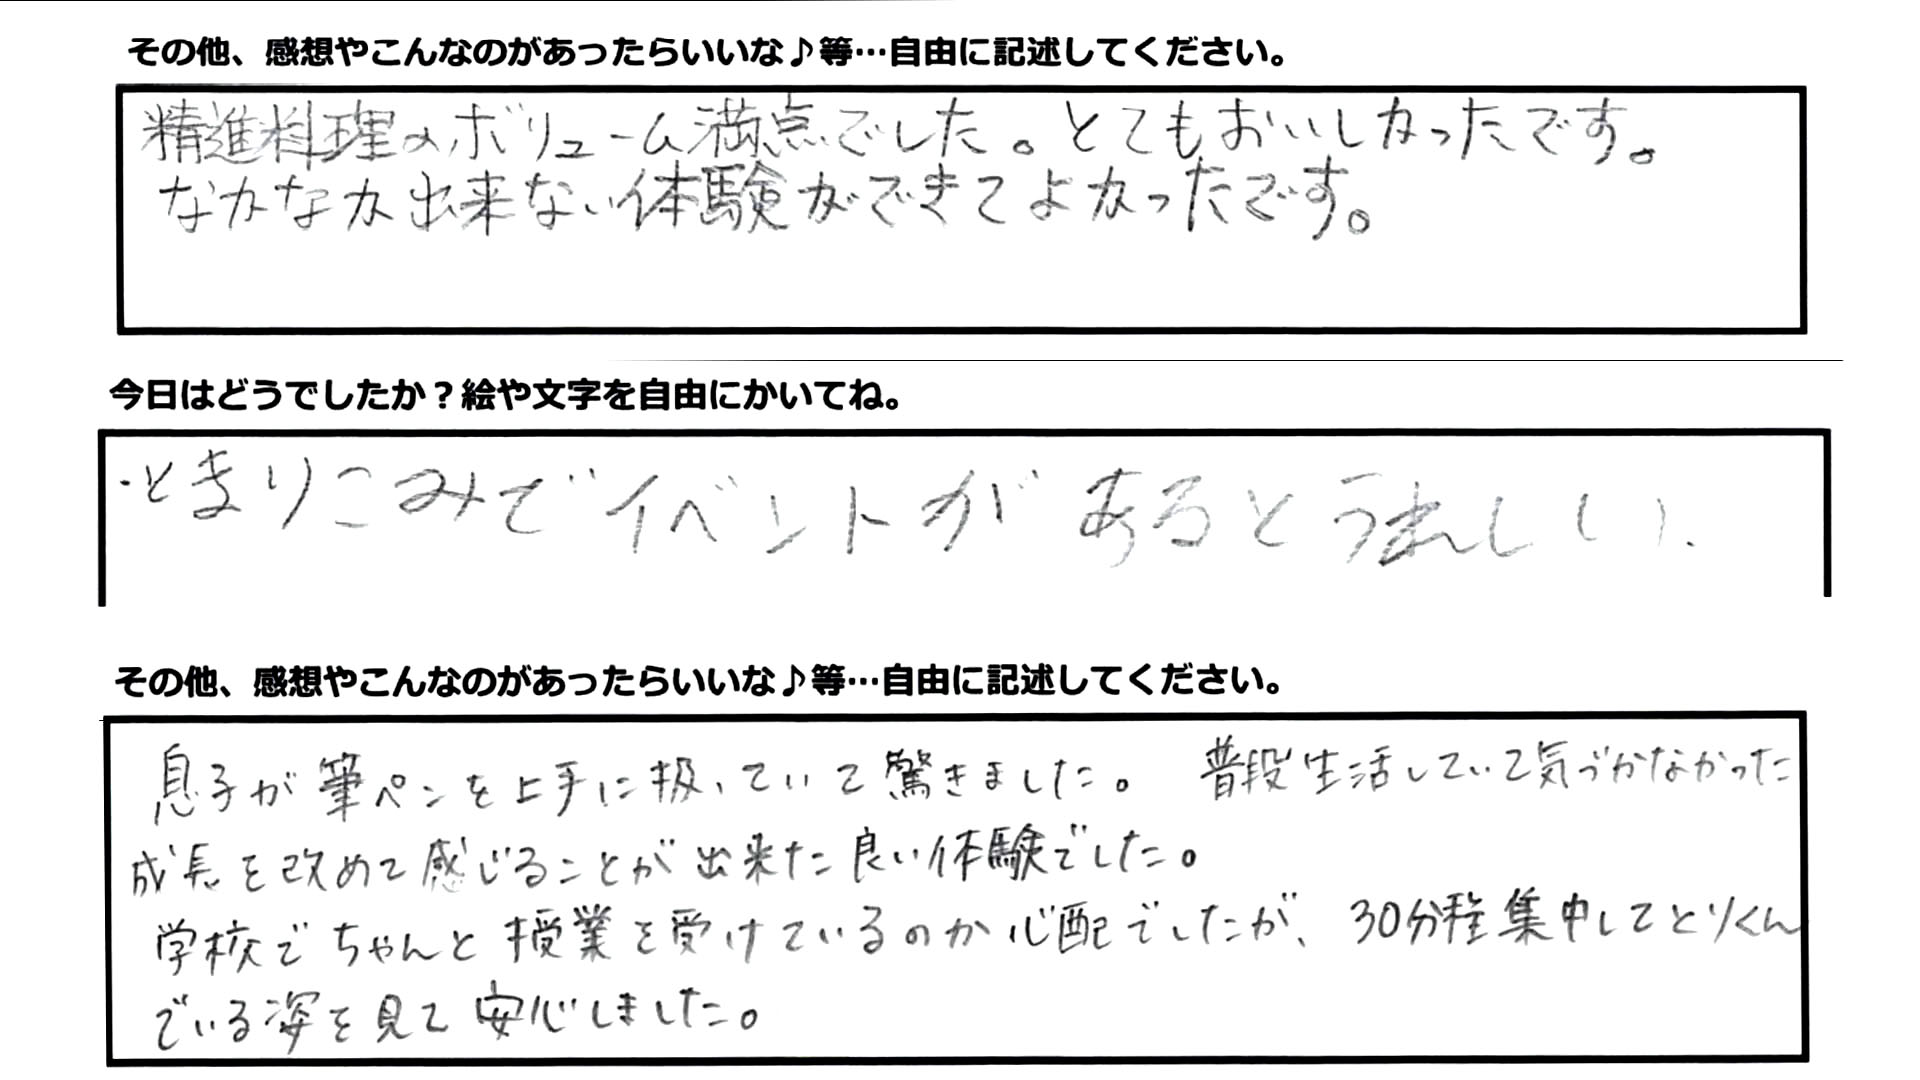 その他、感想やこんなのがあったらいいな♪等…自由に記述してください。
精進料理のボリューム満点でした。とてもおいしかったです。
なかなか出来ない体験ができてよかったです。
今日はどうでしたか？絵や文字を自由にかいてね。
・とまりこみでイベントがあるとうれしい.
その他、感想やこんなのがあったらいいな♪等…自由に記述してください。
息子が筆ペンを上手に扱っていて驚きました。 普段生活していて気づかなかった
成長を改めて感じることが出来た良い体験でした。
学校でちゃんと授業を受けているのか心配でしたが、30分程集中してとりくん
でいる姿を見て安心しました。